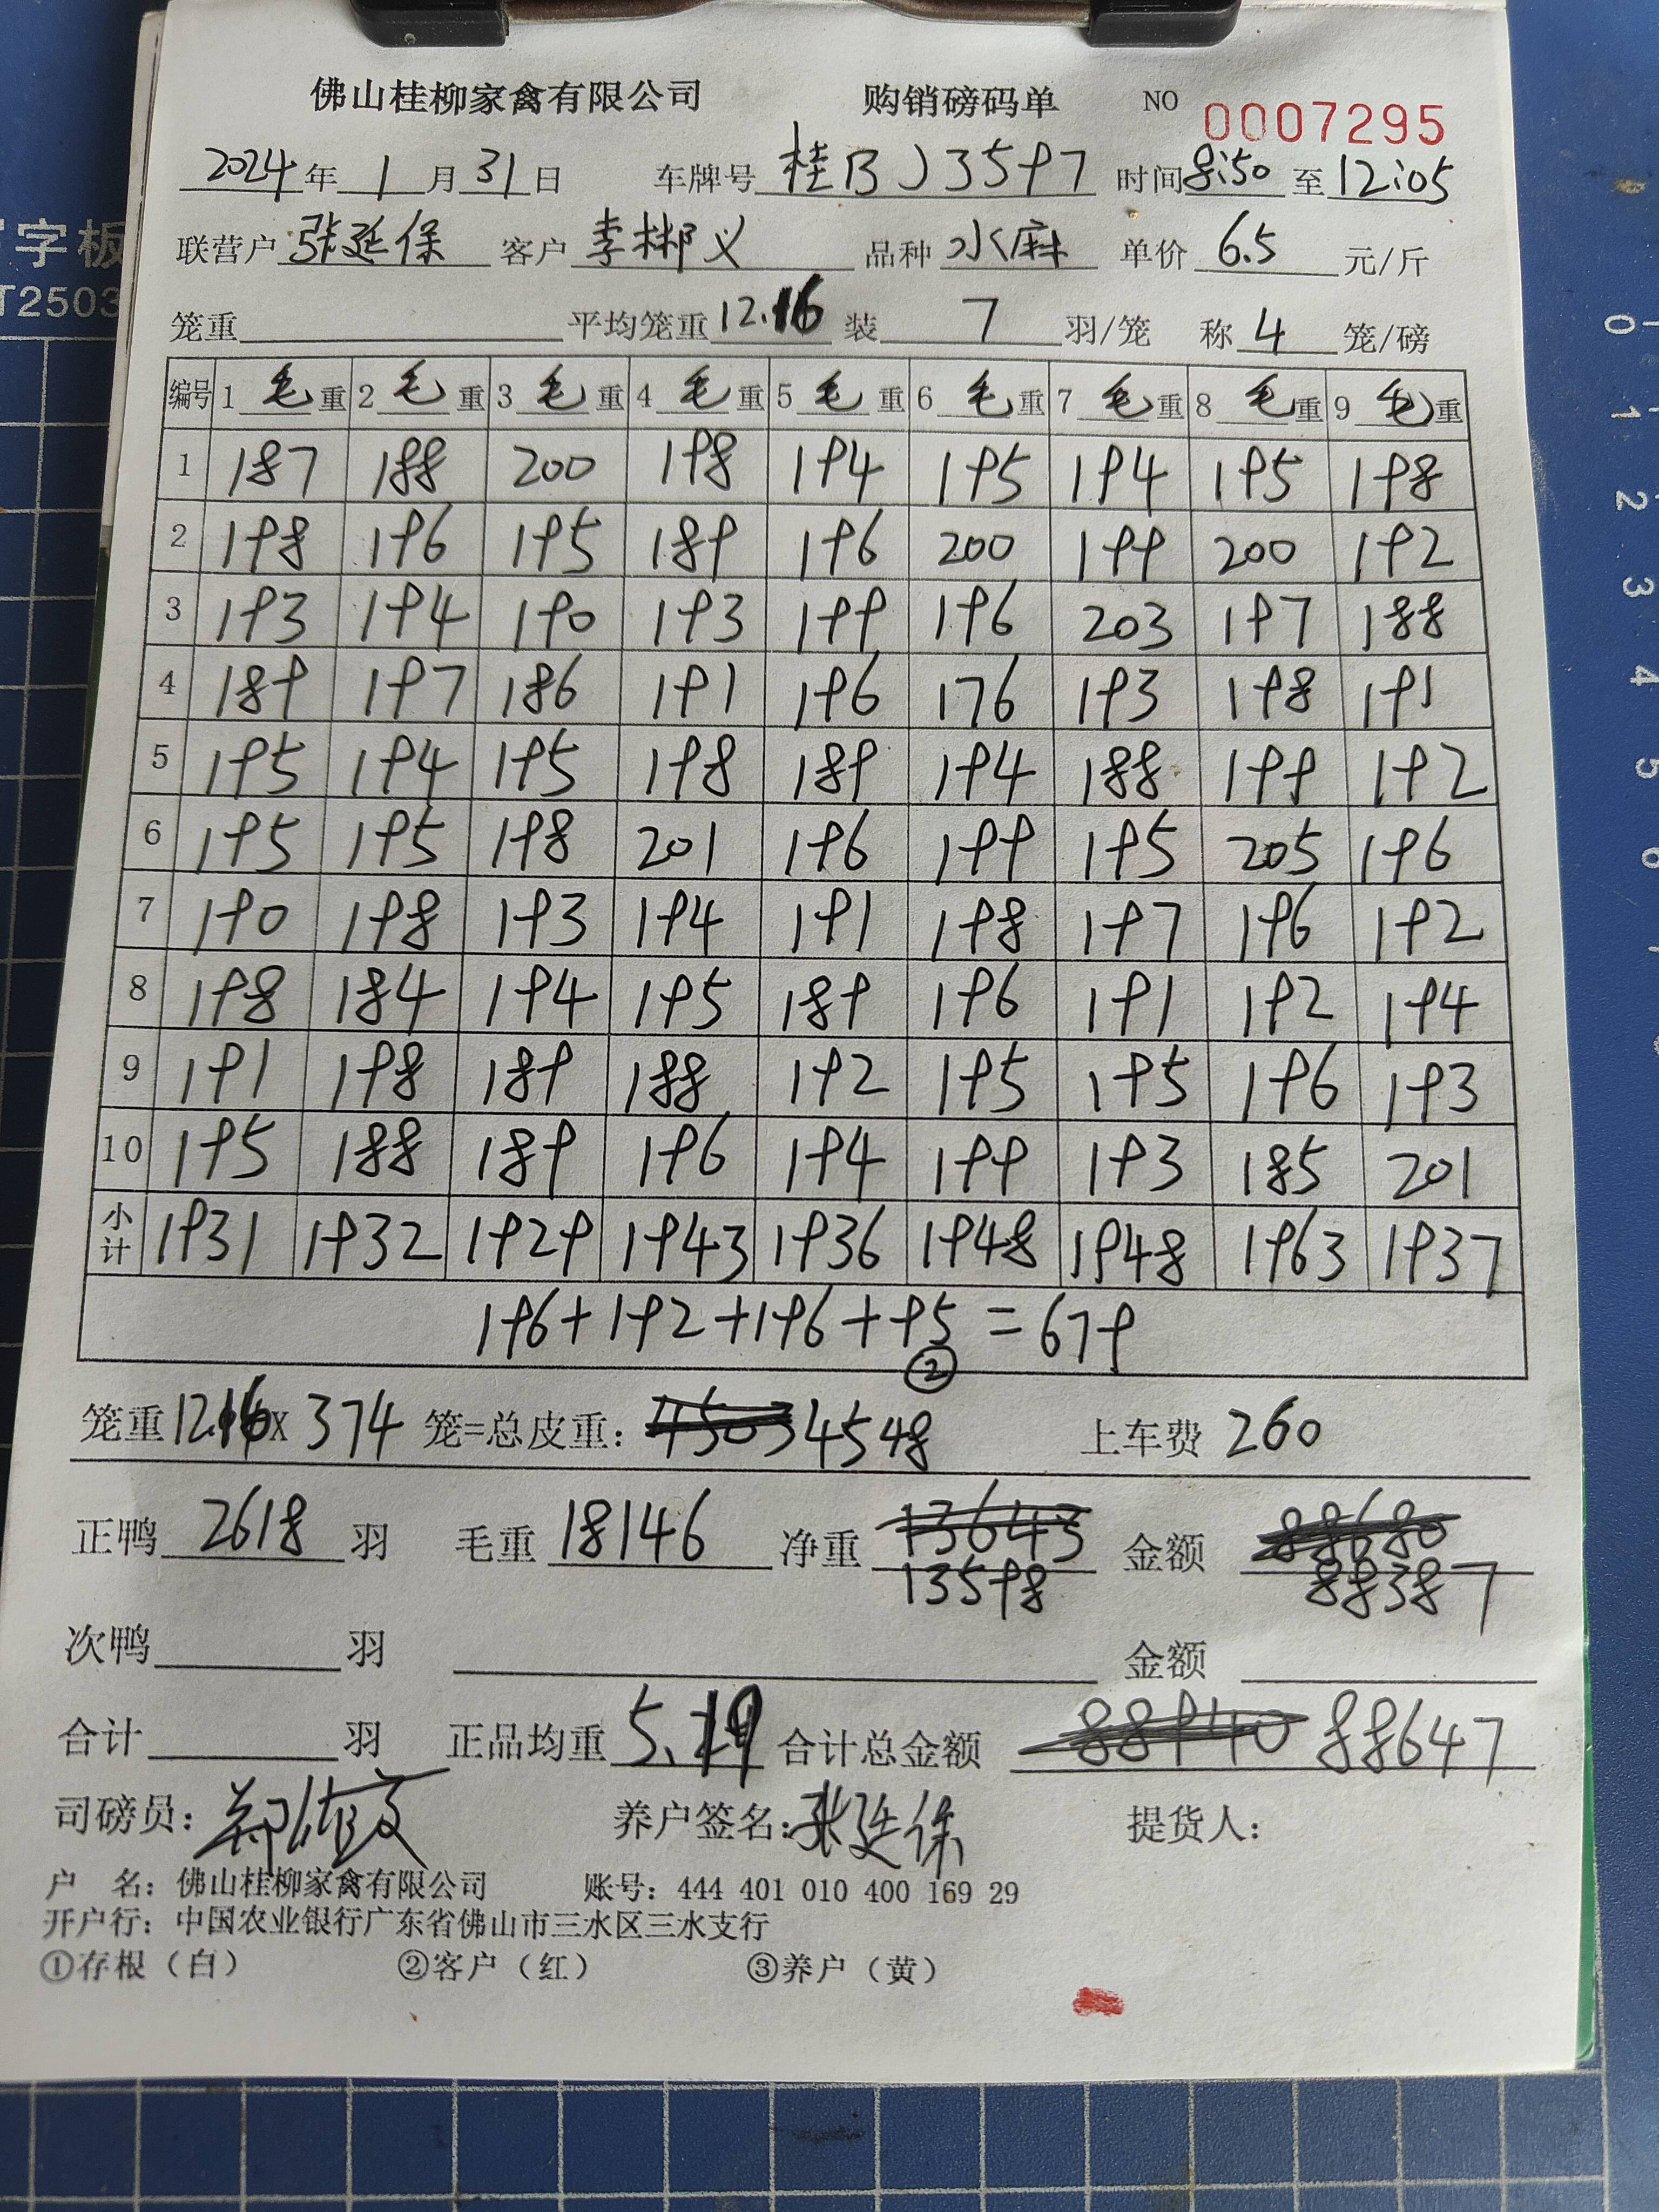 佛山桂柳家禽有限公司 购销磅码单 NO 0007295
2024年1月31日 车牌号 桂BJ3597 时间8:50至12:05
联营户 张延保 客户 李彬义 品种 水麻 单价 6.5 元/斤
笼重 平均笼重 12.16 装 7 羽/笼 称 4 笼/磅
编号 1 毛重 2 毛重 3 毛重 4 毛重 5 毛重 6 毛重 7 毛重 8 毛重 9 毛重
1 187 188 200 198 194 195 194 195 198
2 198 196 195 189 196 200 199 200 192
3 193 194 190 193 199 196 203 197 188
4 189 197 186 191 196 176 193 198 191
5 195 194 195 198 189 194 188 199 192
6 195 195 198 201 196 199 195 205 196
7 190 198 193 194 191 198 197 196 192
8 198 184 194 195 189 196 191 192 194
9 191 198 189 188 192 195 195 196 193
10 195 188 189 196 194 199 193 185 201
小计 1931 1932 1929 1943 1936 1948 1948 1963 1937
196+192+196+95=679
②
笼重12.16X 374 笼=总皮重: 4503 4548 上车费 260
正鸭 2618 羽 毛重 18146 净重 13643 金额 88680
13598 88387
次鸭 羽 金额
合计 羽 正品均重 5.19 合计总金额 88940 88647
司磅员: 养户签名: 张延保 提货人:
户 名: 佛山桂柳家禽有限公司 账号: 444 401 010 400 169 29
开户行: 中国农业银行广东省佛山市三水区三水支行
①存根（白） ②客户（红） ③养户（黄）
字板
T2503
0 1 2 3 4 5 6